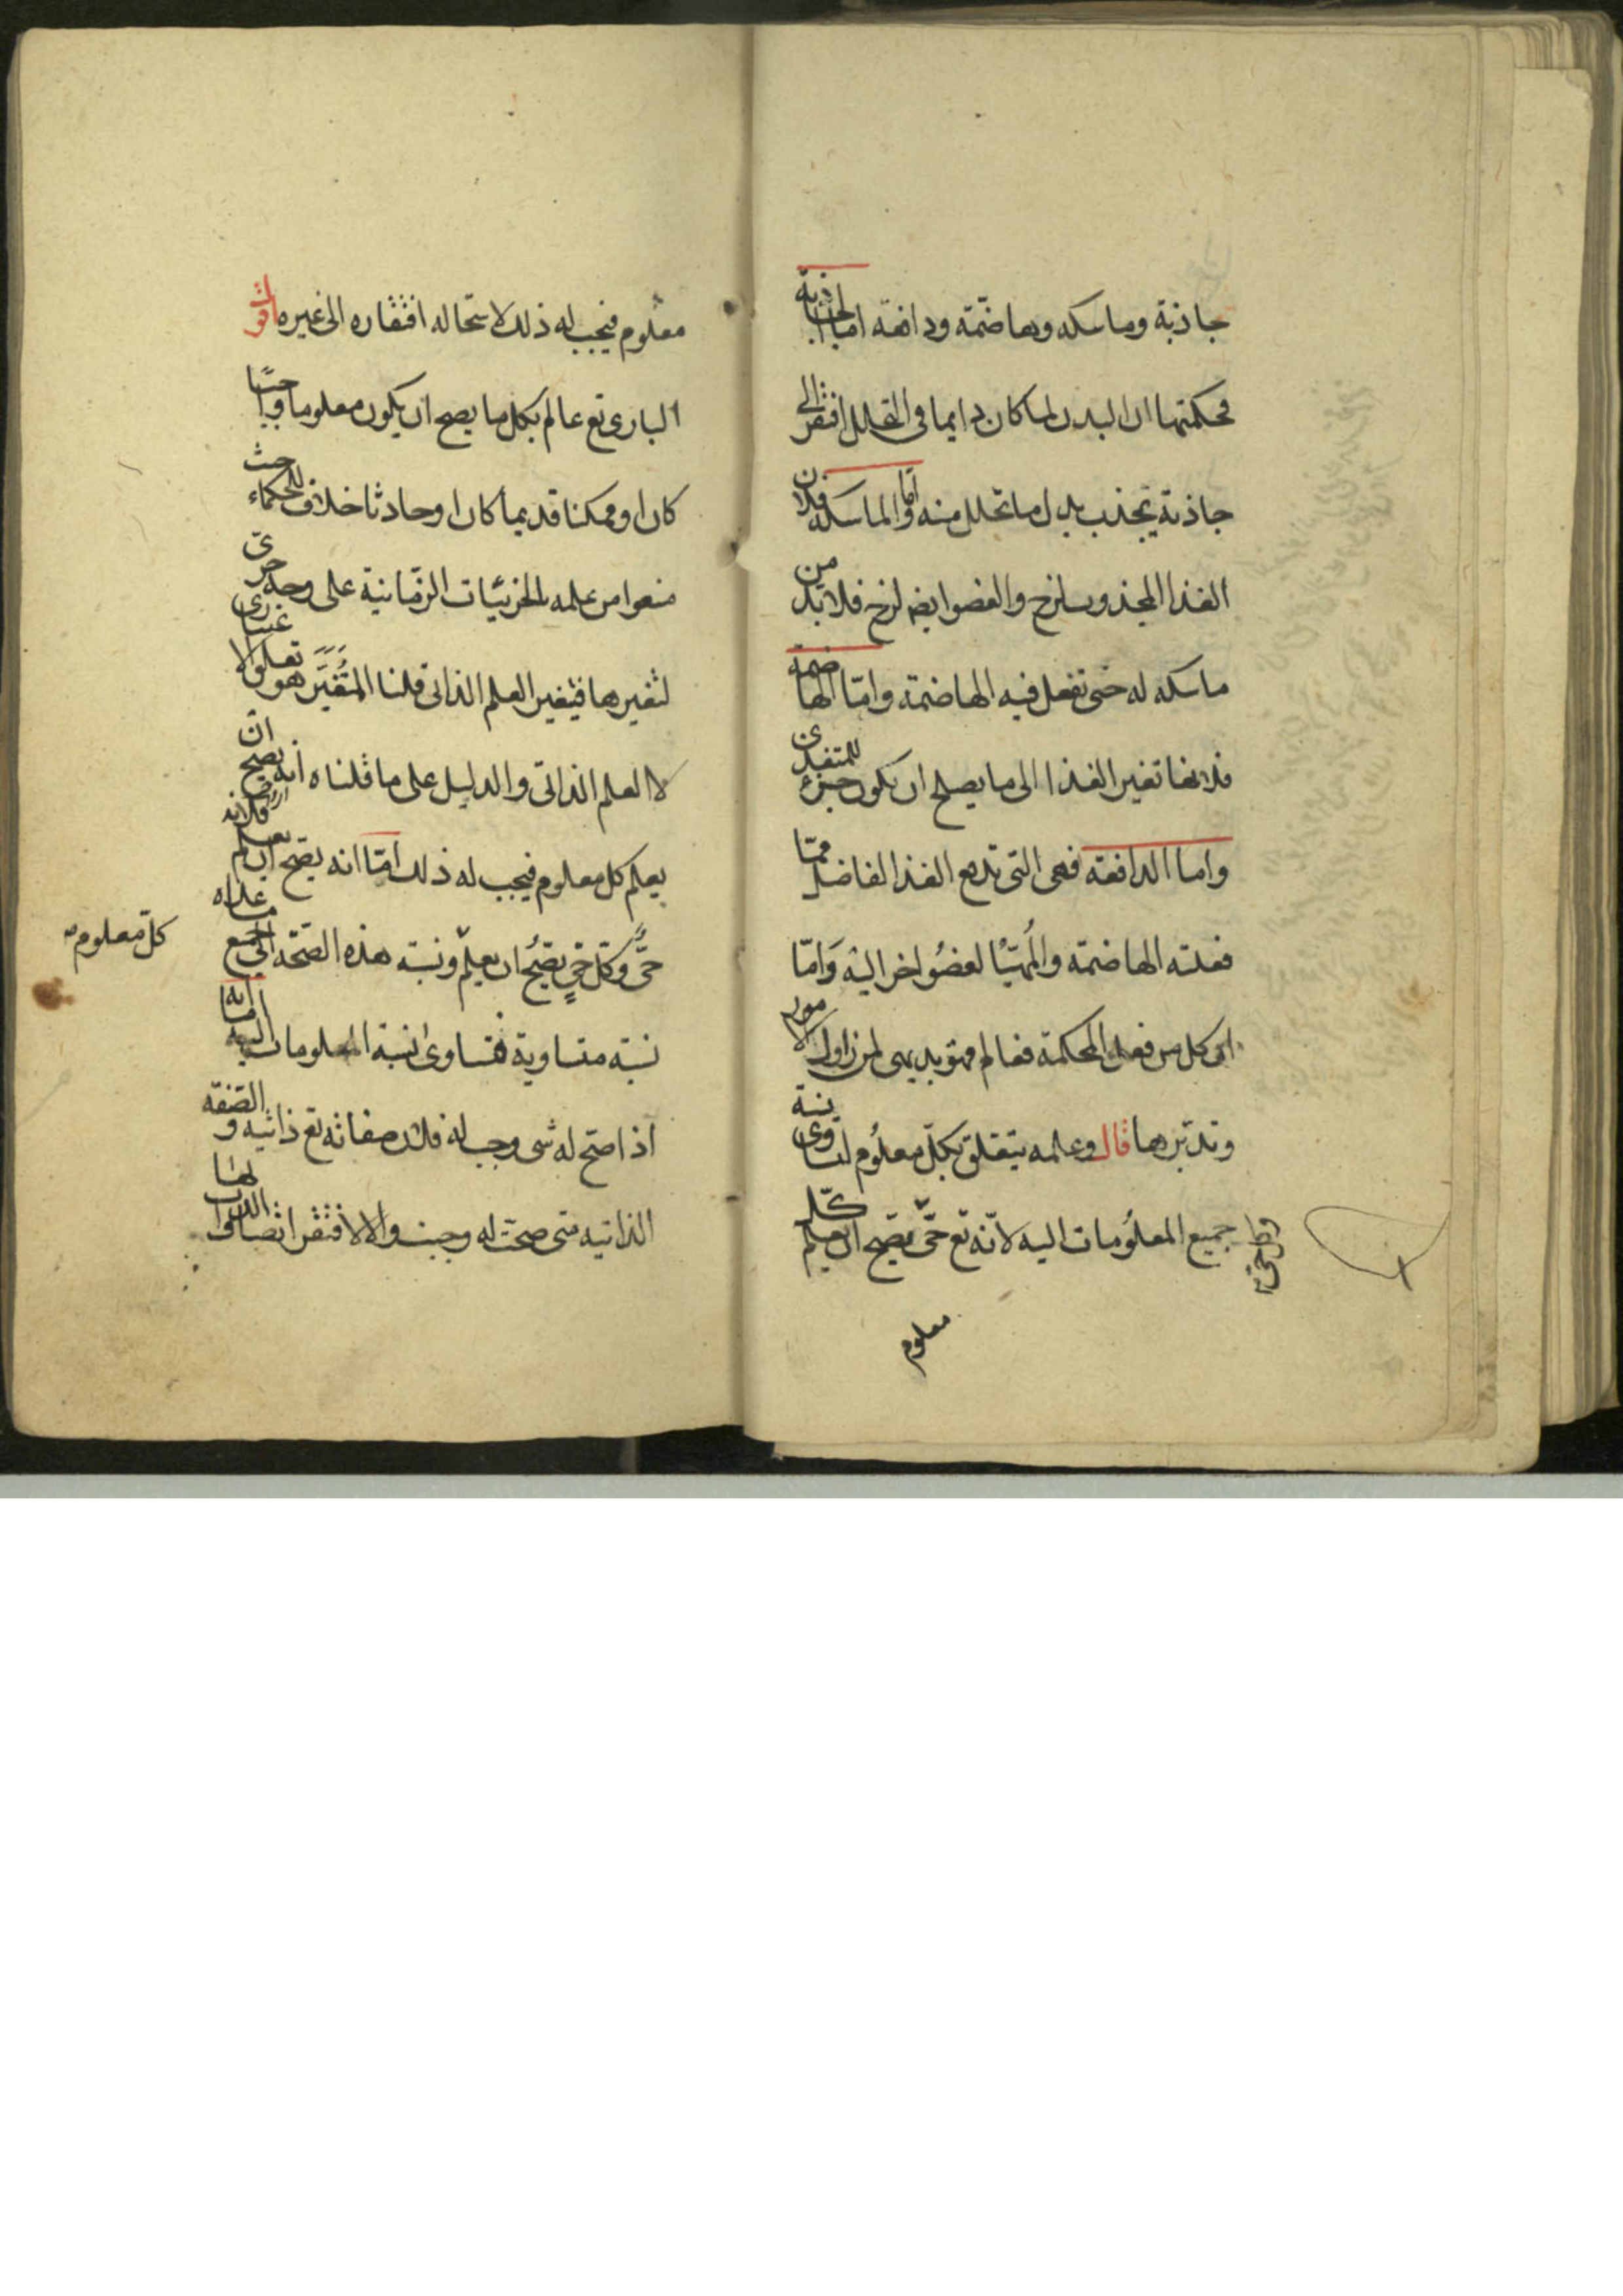 جاذبة وماسكه وهاضمة ودافعه اما الجاذبة
فحكمتها ان البدن لما كان دايما فى التحلل افتقر الى
جاذبة تجذب بدل ما تحلل منه واما الماسكه فلان
الغذا المجذوب لزج والعضو ايضا لزج فلا بد من
ماسكه له حتى تفعل فيه الهاضمة واما الهاضمة
فلانها تغير الغذا الى ما يصلح ان يكون جزء للمتغذى
واما الدافعة فهى التى تدفع الغذا الفاضل مما
فعلته الهاضمة والمهيّا لعضو اخر اليه وَامّا
ان كل من فعل المحكمة فعالم فهو بديهى لمن زاول الامور
وتدبرها قال وعلمه يتعلق بكل معلوم لتساوى نسبة
جميع المعلومات اليه لانه تع حىّ يصح ان يعلم كلّ
معلوم
معلوم فيجب له ذلك لاستحالة افتقاره الى غيره اقول
البارى تع عالم بكل ما يصح ان يكون معلوما واجبا
كان او ممكنا قديما كان او حادثا خلافا للحكماء حيث
منعوا من علمه بالجزئيات الزمانية على وجه جزئى
لتغيرها فيتغير العلم الذاتى قلنا المتغيّر هو التعلق الاعتبارى
لا العلم الذاتى والدليل على ما قلناه انه يصح ان
يعلم كل معلوم فيجب له ذلك امّا انه يصح ان يعلم
كلّ معلوم
حىّ وكل حىٍ يصح ان يعلم ونسبة هذه الصحّة الى جميع ما عداه
نسبة متساوية فتساوى نسبة المعلومات اليه
اذا صح له شى وجب له فلان صفاته تع ذاتيه والصفة
الذاتيه متى صحت له وجبت والا لافتقر اتصاف الذات بها